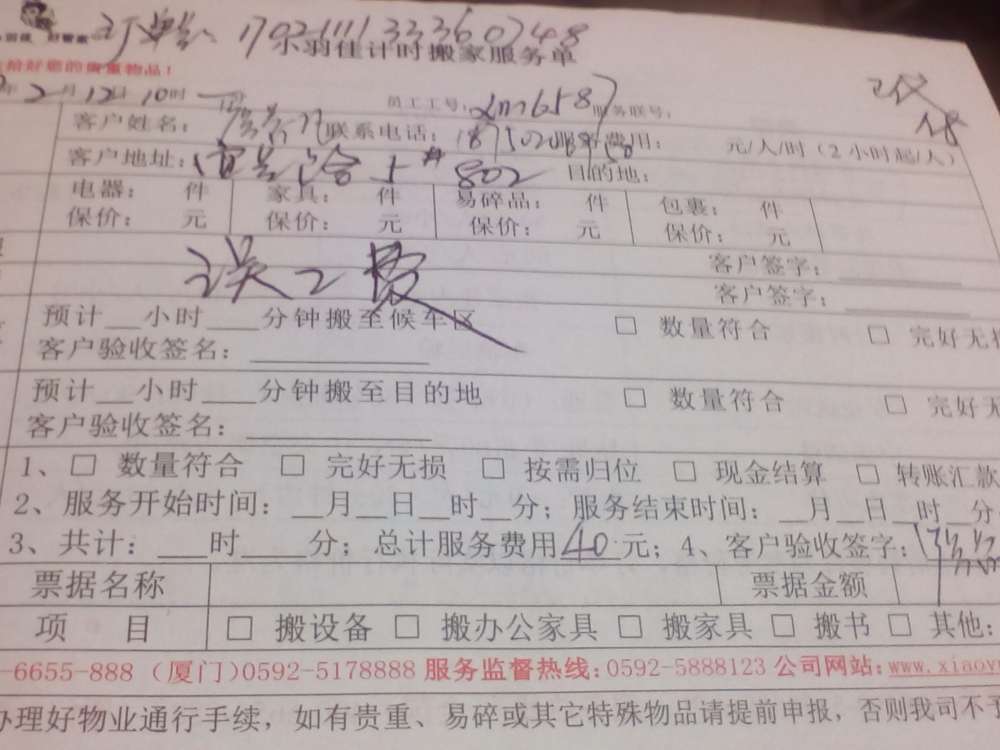 订单: 1702111133360748
小羽佳计时搬家服务单
您的贵重物品！
年2月12日10时
员工工号: 服务联号:
客户姓名: 联系电话: 服务费用: 元/人/时（2小时起/人）
客户地址: 802 目的地:
电器: 件 家具: 件 易碎品: 件 包裹: 件
保价: 元 保价: 元 保价: 元 保价: 元
误工费
客户签字:
客户签字:
预计__小时___分钟搬至候车区 □ 数量符合 □ 完好无损
客户验收签名:
预计__小时___分钟搬至目的地 □ 数量符合 □ 完好无
客户验收签名:
1、□ 数量符合 □ 完好无损 □ 按需归位 □ 现金结算 □ 转账汇款
2、服务开始时间: __月__日__时__分; 服务结束时间: __月__日__时__分
3、共计: ___时____分; 总计服务费用40元; 4、客户验收签字:
票据名称 票据金额
项 目 □ 搬设备 □ 搬办公家具 □ 搬家具 □ 搬书 □ 其他:
-6655-888 (厦门)0592-5178888 服务监督热线:0592-5888123 公司网站:www.xiaoy
办理好物业通行手续，如有贵重、易碎或其它特殊物品请提前申报，否则我司不予